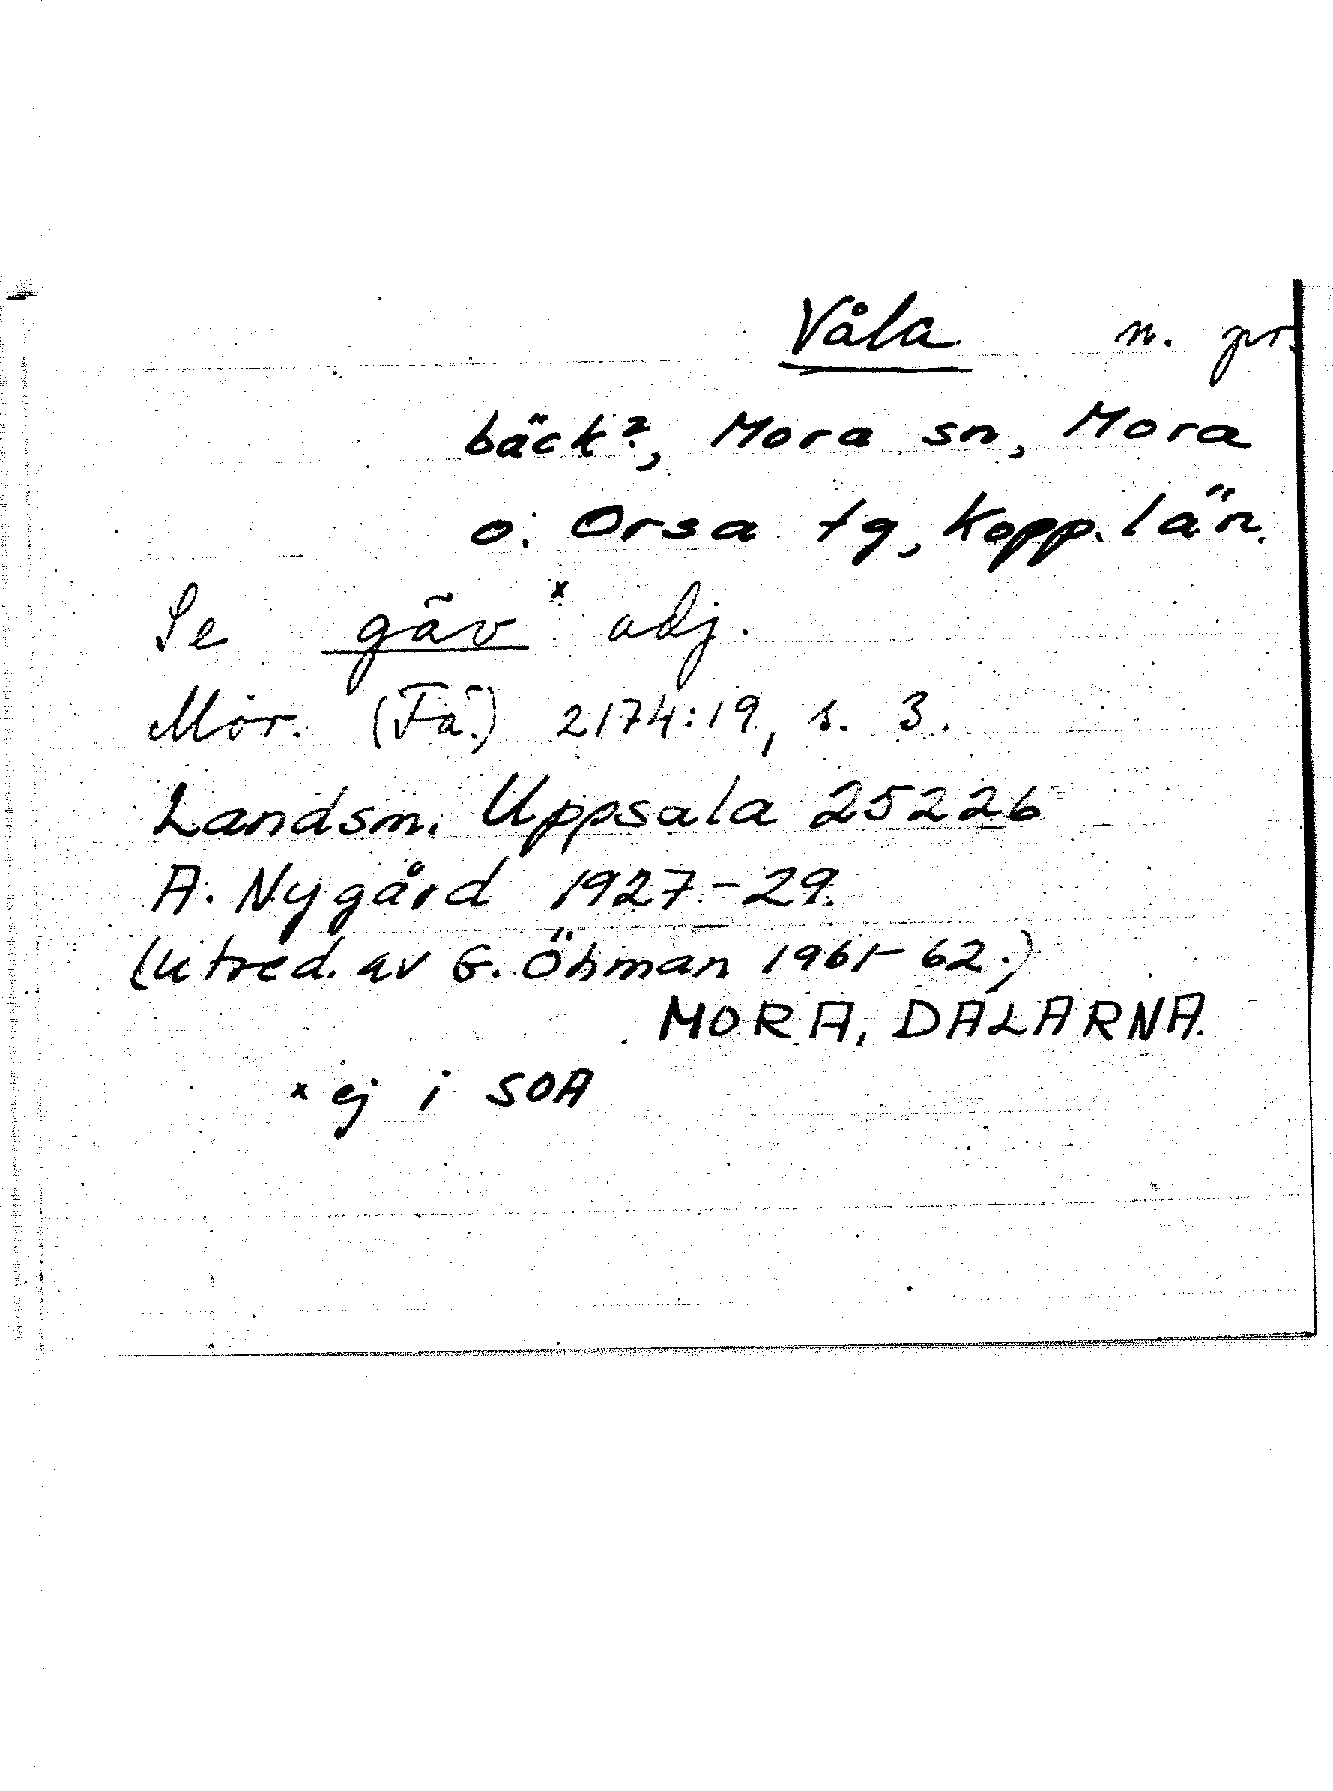 Våla n. pr.
bäck?, Mora sn, Mora
o. Orsa tg, Kopp. län.
Se gäv x adj.
Mor. (Fä.) 2174:19, s. 3.
Landsm. Uppsala 25226
A. Nygård 1927-29.
(Utred. av G. Öhman 1961-62.)
MORA, DALARNA.
x ej i SOA